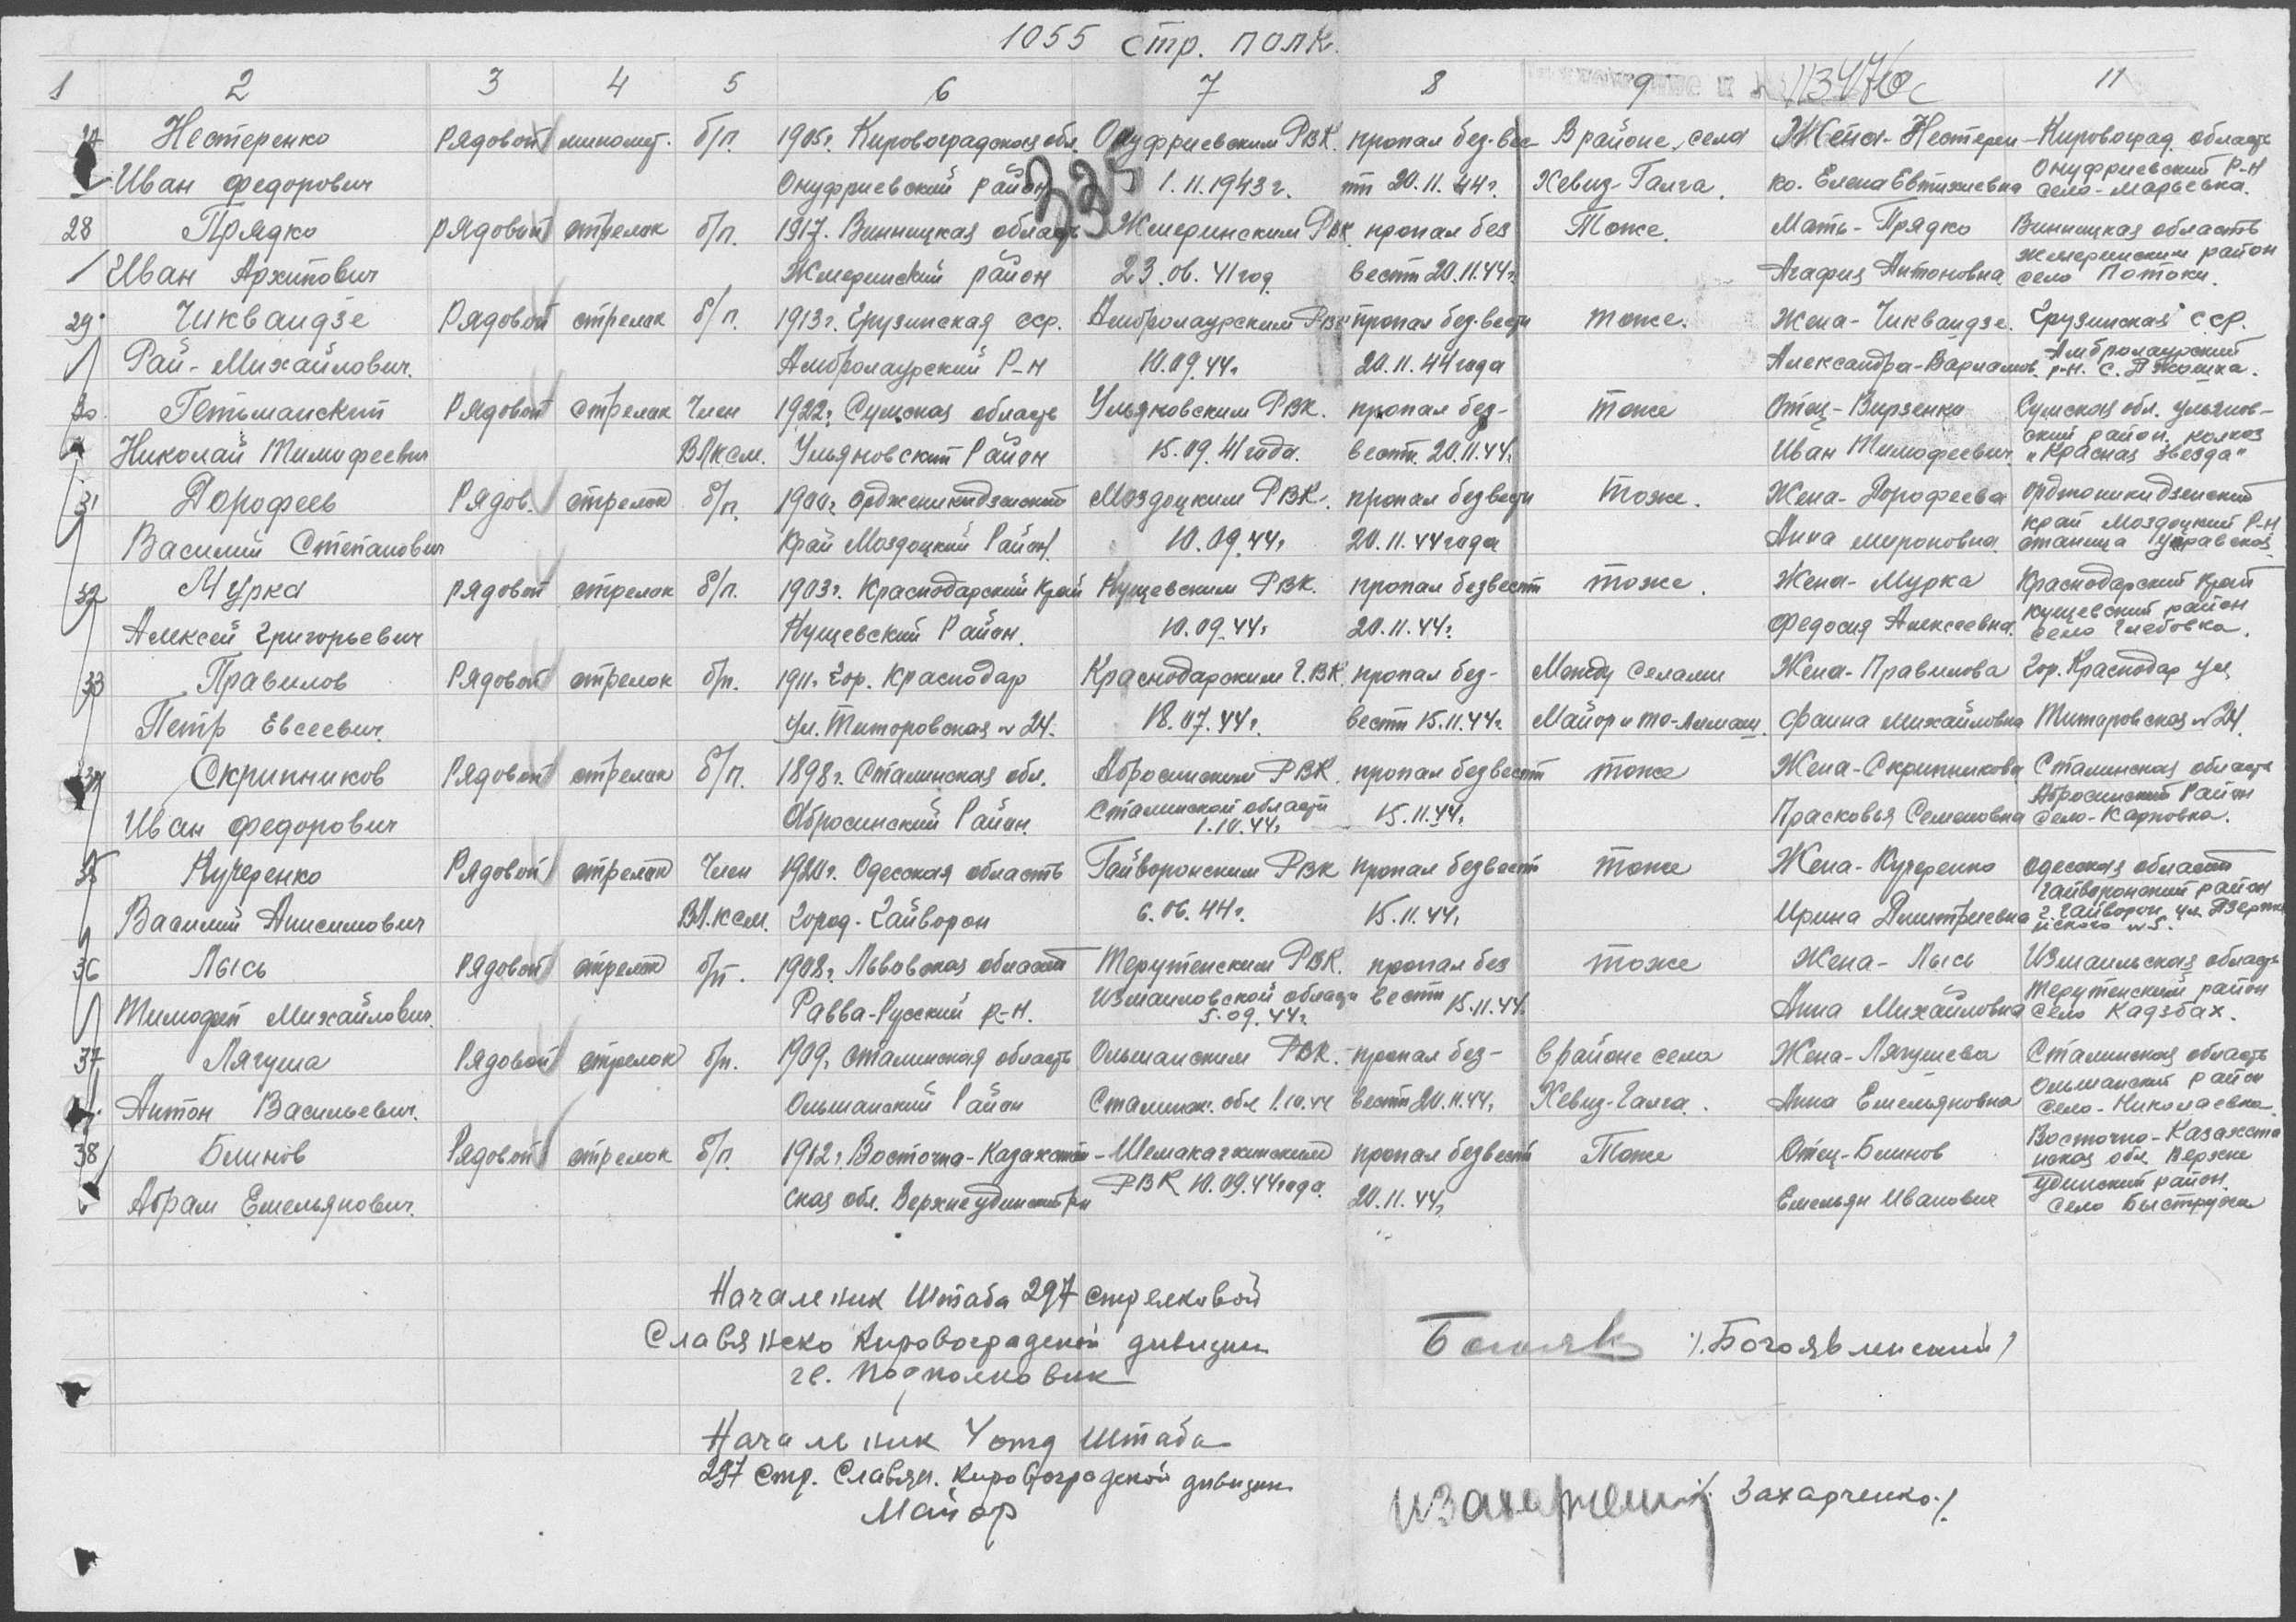 1055 стр. полк.
1 2 3 4 5 6 7 8 9 11
113470с
335
27 Нестеренко Рядовой миномет. б/п. 1905г. Кировоградская обл. Онуфриевским РВК. пропал без-вес- В районе села Жена-Нестерен- Кировоград. область
Иван Федорович Онуфриевский район 1.11.1943г. ти 20.11.44г. Хевиз-Галга. ко. Елена Евтихиевна Онуфриевский Р-Н
село-Марьевка.
28 Прядко Рядовой стрелок б/п. 1917. Винницкая область Жмеринским РВК. пропал без Тоже. Мать-Прядко Винницкая область
Иван Архипович Жмеринский район 23.06.41год вести 20.11.44г. Агафия Антоновна Жмеринским район
село Потоки.
29 Чиквaидзе Рядовой стрелок б/п. 1913г. Грузинская сср. Амбролаурским РВК пропал без-вести тоже. Жена-Чиквaидзе. Грузинская сср.
Рай-Михайлович. Амбролаурский Р-Н 10.09.44г. 20.11.44 года Александра-Варламов. Амбролаурский
р-н. с.
30 Гетьманский Рядовой стрелок Член 1922г. Сумская область Ульяновским РВК. пропал без- тоже Отец-Вирзенко Сумская обл. Ульянов-
Николай Тимофеевич ВЛКСМ. Ульяновский Район 15.09.41 года. вести. 20.11.44г. Иван Тимофеевич. ский район. колхоз
"Красная звезда"
31 Дорофеев Рядов. стрелок б/п. 1900г. Орджоникидзенский Моздоцким РВК. пропал безвести тоже. Жена-Дорофеева Орджоникидзенский
Василий Степанович Край Моздоцкий Район. 10.09.44г. 20.11.44 года Анна Мироновна. край Моздоцкий Р-Н
станица
32 Мурка Рядовой стрелок б/п. 1903г. Краснодарский Край Кущевским РВК. пропал безвести тоже. Жена-Мурка Краснодарский край
Алексей Григорьевич Кущевский Район. 10.09.44г. 20.11.44г. Федосия Алексеевна. Кущевский район
село Глебовка.
33 Правилов Рядовой стрелок б/п. 1911г. Гор. Краснодар Краснодарским Г.ВК. пропал без- Между селами Жена-Правилова Гор. Краснодар ул
Петр Евсеевич. Ул. Титоровская №24. 18.07.44г. вести 15.11.44г. Майор и то-Алмаш. Фаина Михайловна Титаровская №24.
34 Скрипников Рядовой стрелок б/п. 1898г. Сталинская обл. Абросинским РВК. пропал безвести тоже Жена-Скрипникова Сталинская область
Иван Федорович Абросинский Район. Сталинской области
1.10.44г. 15.11.44г. Прасковья Семеновна Абросинский Район
село-Карповка.
35 Кучеренко Рядовой стрелок Член 1920г. Одесская область Гайворонским РВК пропал безвести тоже Жена-Кучеренко Одесская область
Василий Анисимович ВЛКСМ. Город-Гайворон 6.06.44г. 15.11.44г. Ирина Дмитриевна Гайворонский район
г. Гайворон, ул. Дзержи
нского №5.
36 Лысь Рядовой стрелок б/п. 1908г. Львовская область Терутенским РВК. пропал без тоже Жена-Лысь Измаильская область
Тимофей Михайлович. Равва-Русский р-н. Измаиловской области
5.09.44г. вести 15.11.44г. Анна Михайловна Терутенский район
село Кадзбах.
37 Лягуша Рядовой стрелок б/п. 1909г. Сталинская область Ольшанским РВК. пропал без- в районе села Жена-Лягушева Сталинская область
Антон Васильевич. Ольшанский Район Сталинск. обл. 1.10.44 вести 20.11.44г. Хевиз-Галга. Анна Емельяновна Ольшанский район
село-Николаевка.
38 Блинов Рядовой стрелок б/п. 1912г. Восточна-Казахстан- пропал безвести Тоже Отец-Блинов Восточно-Казахста
Абрам Емельянович. ская обл. Верхнеудинский рн РВК 10.09.44 года. 20.11.44г. Емельян Иванович нская обл. Верхне
удинский район.
село Быструха
Начальник Штаба 297 стрелковой
Славянско Кировоградской дивизии
гв. подполковник /.Богоявленский/
Начальник 4 отд Штаба
297 Стр. Славян. Кировоградской дивизии
Майор /. Захарченко./